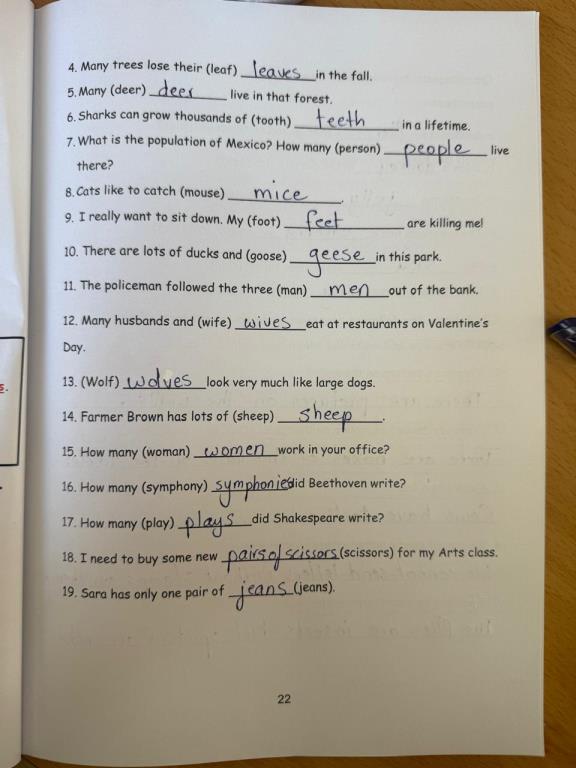 4. Many trees lose their (leaf) leaves in the fall.
5. Many (deer) deer live in that forest.
6. Sharks can grow thousands of (tooth) teeth in a lifetime.
7. What is the population of Mexico? How many (person) people live
there?
8. Cats like to catch (mouse) mice.
9. I really want to sit down. My (foot) feet are killing me!
10. There are lots of ducks and (goose) geese in this park.
11. The policeman followed the three (man) men out of the bank.
12. Many husbands and (wife) wives eat at restaurants on Valentine's
Day.
13. (Wolf) wolves look very much like large dogs.
14. Farmer Brown has lots of (sheep) sheep.
15. How many (woman) women work in your office?
16. How many (symphony) symphonies did Beethoven write?
17. How many (play) plays did Shakespeare write?
18. I need to buy some new pairs of scissors (scissors) for my Arts class.
19. Sara has only one pair of jeans (jeans).
22